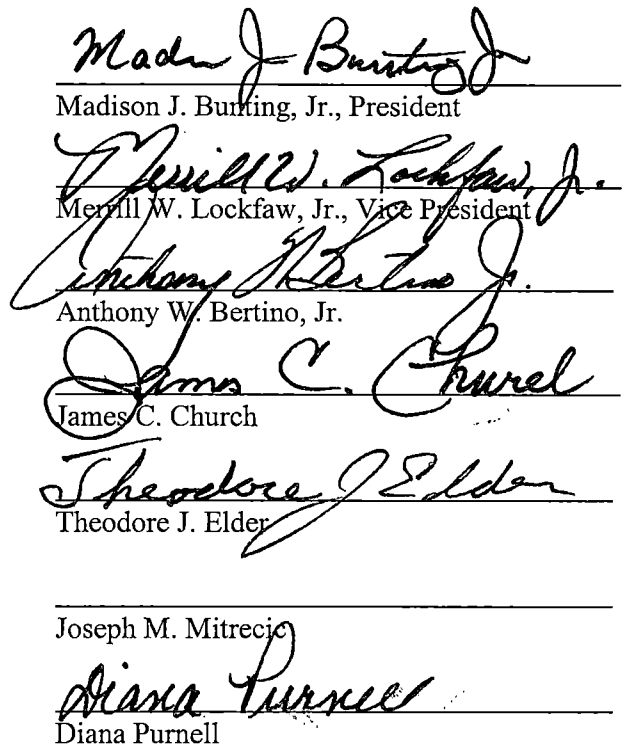 Madison J Bunting Jr
Madison J. Bunting, Jr., President
Merrill W. Lockfaw, Jr.
Merrill W. Lockfaw, Jr., Vice President
Anthony W Bertino Jr.
Anthony W. Bertino, Jr.
James C. Church
James C. Church
Theodore J Elder
Theodore J. Elder
Joseph M. Mitrecic
Diana Purnell
Diana Purnell